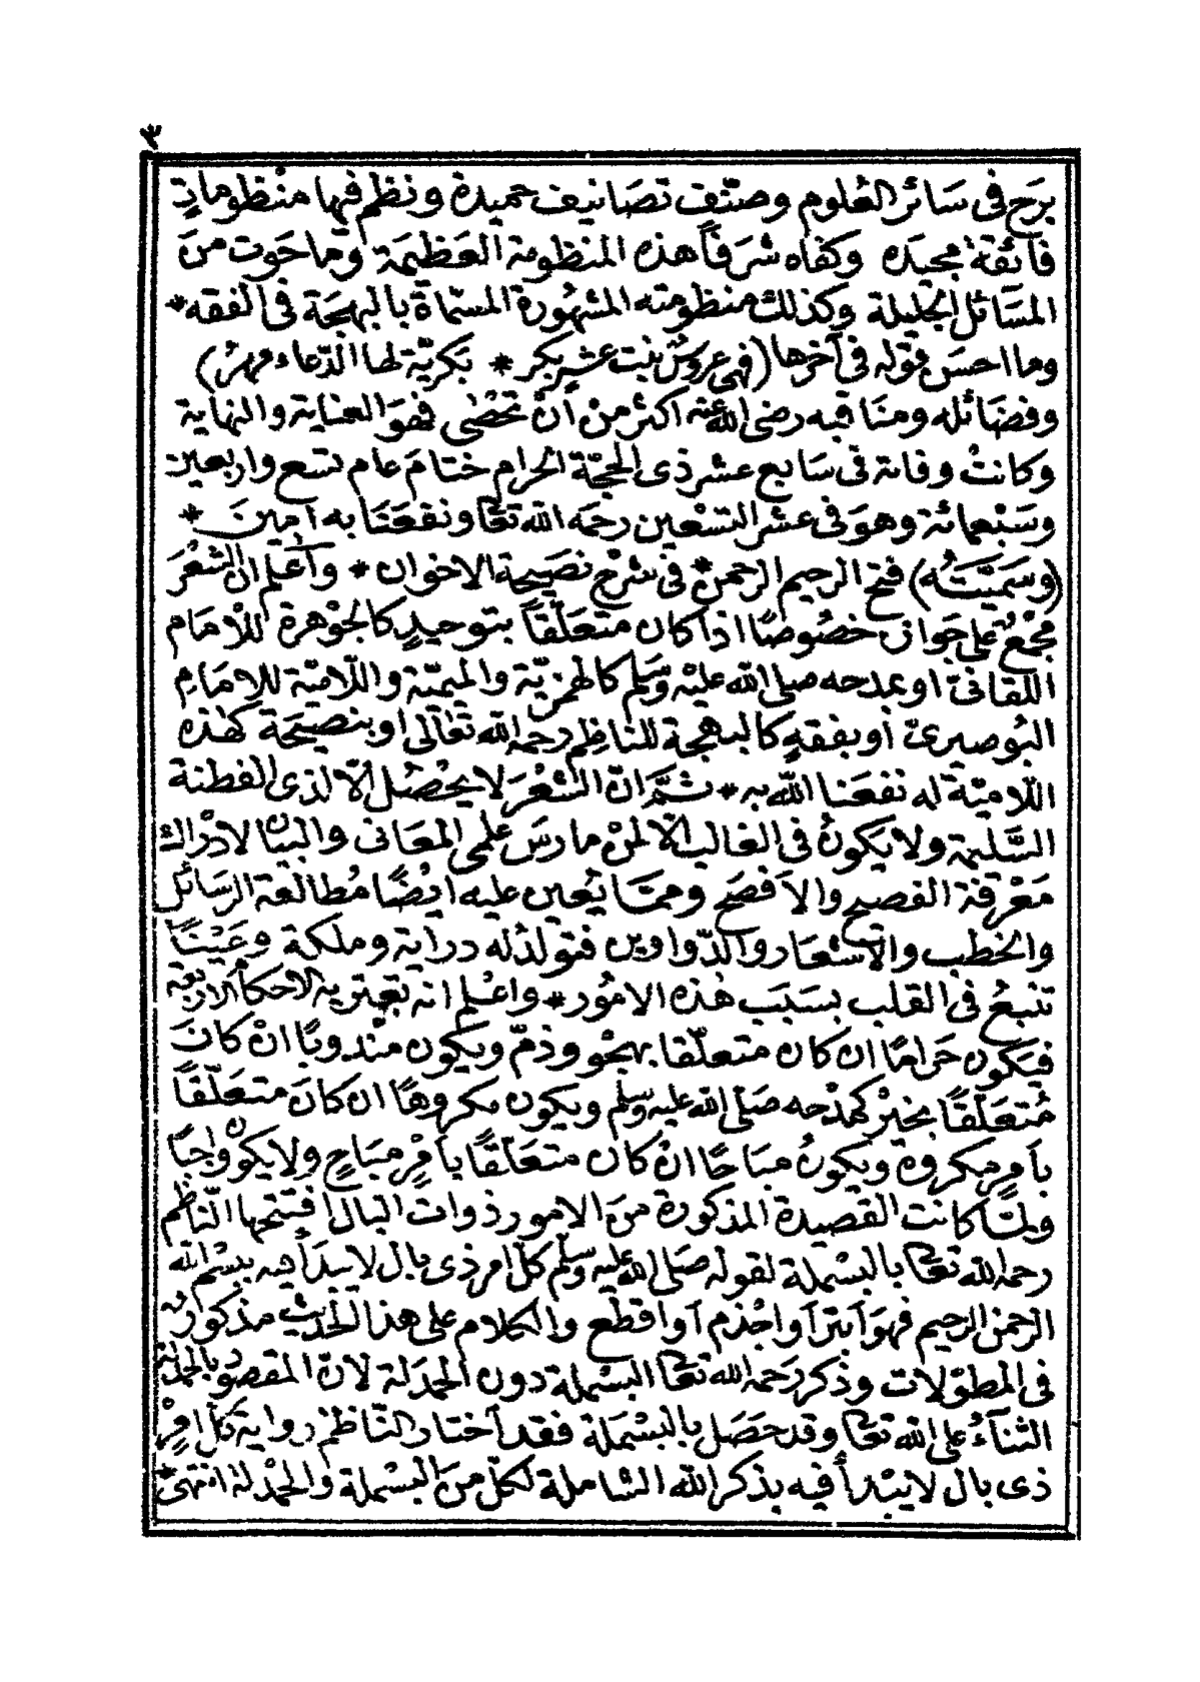 ٣
برَح فى سَائر العُلوم وصنّف تصَانيف حميدة ونظم فيها منْظومات
فائقة مجيده وكفاه شرَفاً هذه المنظومة العَظيمَة وما حَوت منَ
المسَائل الجليلة وكذلك منظومته المشهُورة المسمّاة بالبهجَة فى الفقه*
وما احسَن قوله فى آخرها (فهى عروسٌ بنت عشرٍ بكر * بكريّة لها الدّعاء مهرُ)
وفضائله ومنَاقبه رضى الله عنه اكثر منْ أنْ تحصى فهوَ العناية والنهاية
وكانتْ وفاته فى سَابع عشر ذى الحجّة الحرام ختامَ عام تسع واربعين
وسَبْعمائة وهوَ فى عشر التسْعين رحمَه الله تعَا ونفعَنَا به آمينَ *
(وسَميّتُه) فتح الرحيم الرحمن* فى شرْح نصَيحة الاخوان * وأعْلم انّ الشعْرَ
مجْمعٌ على جَوازه خصُوصًا اذا كان متعَلّقاً بتوحيدٍ كالجوْهرة للامَام
اللّقانىّ او بمدحه صلى الله عليْه وسَلم كالهمْزيّة والميميّة واللّاميّة للامَام
البُوصيرىّ أو بفقهٍ كالبهجة للنّاظم رحمَه الله تعَالى او بنصيحَة كهذه
اللّاميّة له نفعَنا اللّه به * ثمَّ انّ الشعْرَ لا يحْصُل الّا لذى الفطنة
السَّليمة ولا يَكونُ فى الغالب الّا لمنْ مارسَ علمى المعَانى والبيان لادْراك
مَعْرفة الفصيح والافصَح وممّا يُعين عليه ايْضًا مُطالعَة الرسَائل
والخطب والاشعَار والدّواوين فتولد له دراية وملكة وعَيْناً
تنبعُ فى القلب بسَبَب هذه الامُور* واعْلم انه تعْتريه الاحكام الاربعة
فيَكون حَرامًا ان كان متعلّقا بهجْو وذمّ ويكون منْدوبًا انْ كانَ
مُتعَلّقًا بخيْر كمدْحه صَلّى الله عليه وسلم ويكون مكروهًا ان كانَ متعَلّقاً
بأمرٍ مكروه ويكونُ مبَاحًا انْ كان متعَلّقًا بأمْرٍ مبَاحٍ ولا يكون واجبًا
ولمّا كانت القصيدة المذكورة منَ الامور ذوات البال افتتحها النّاظم
رحمَه الله تعَا بالبسْملة لقوله صَلى الله عليه وسلم كلّ امر ذى بال لا يبْدأ فيه ببسْم الله
الرحمن الرحيم فهوَ أبترَ أو اجْذم أو اقطع والكلام على هذا الحديث مذكورٌ
فى المطوّلات وذكر رَحمَه الله تعَا البسْملة دون الحمْدلة لانّ المقصود بالحمدلة
الثنَاءُ على الله تعَا وقد حصَل بالبسْمَلة فقد أختار النّاظم رواية كلّ امرٍ
ذى بال لا يبْدأ فيه بذكر الله الشاملة لكلّ منَ البسْملة والحمْدلة انتهىَ